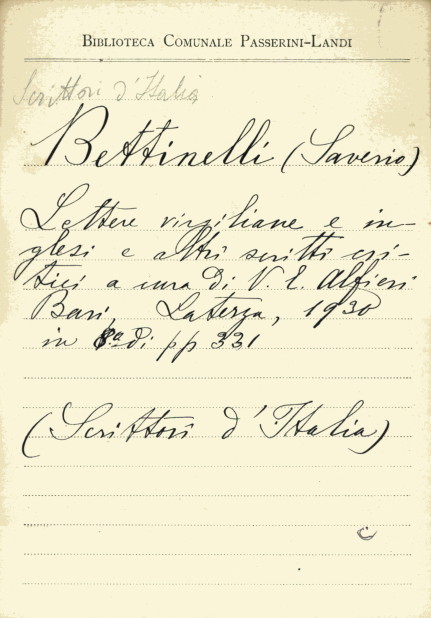 BIBLIOTECA COMUNALE PASSERINI-LANDI
Scrittori d'Italia
Bettinelli (Saverio)
Lettere virgiliane e in-
glesi e altri scritti cri-
tici a cura di V. E. Alfieri
Bari, Laterza, 1930
in 8º di pp 331
(Scrittori d'Italia)